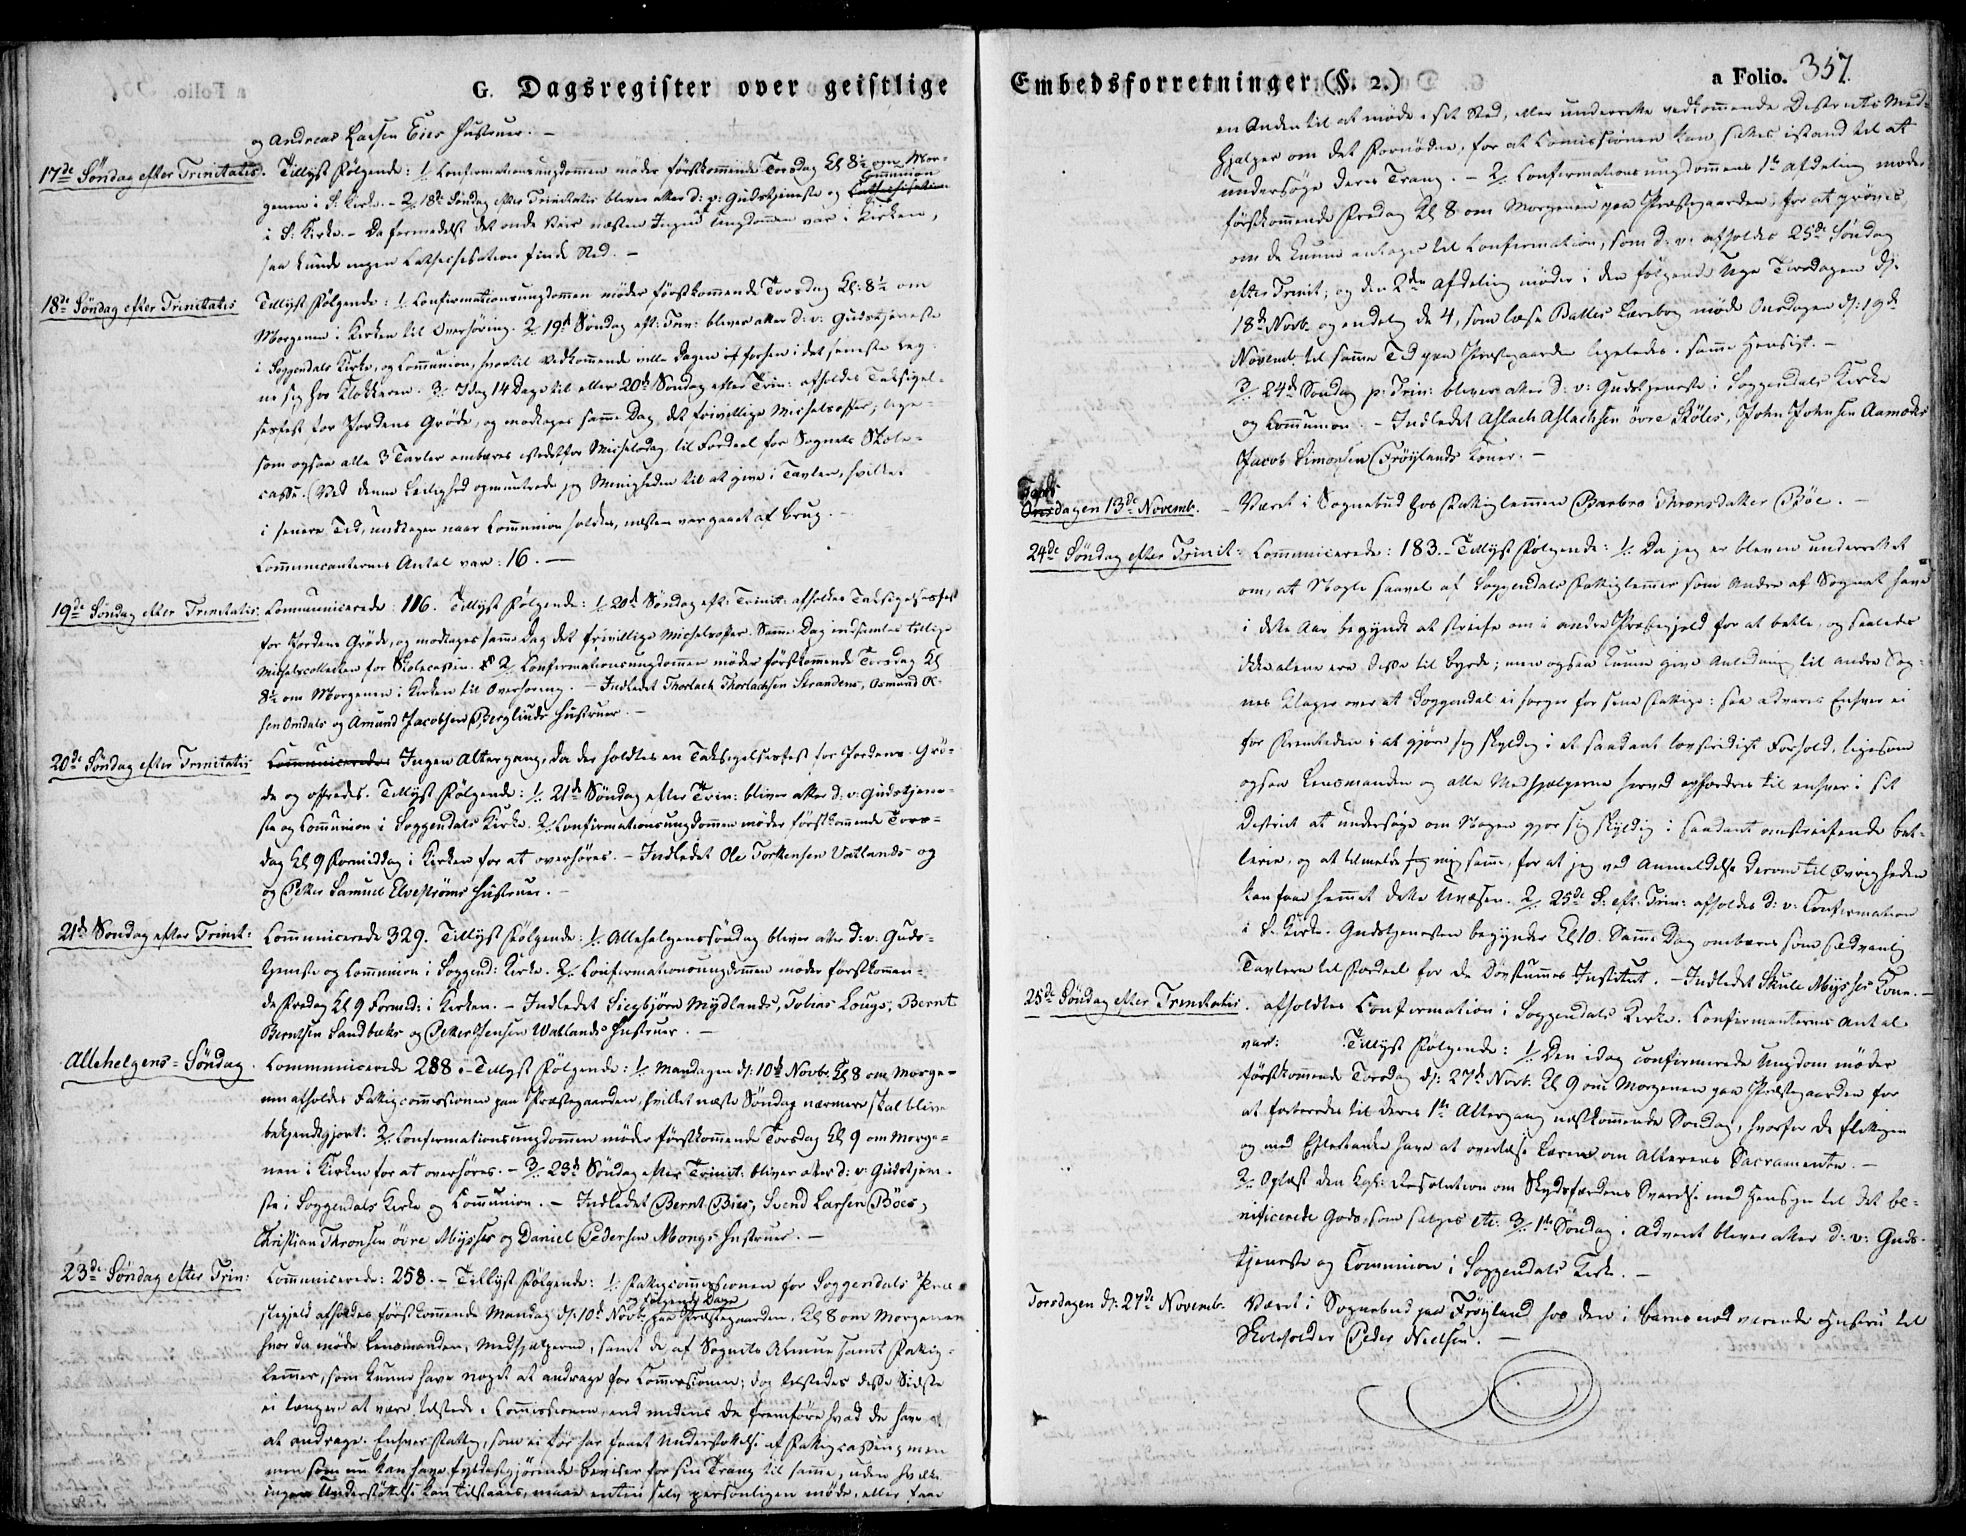 G. Dagsregister over geistlige
og Andreas Larsen Eies Hustruer. –
17de Søndag efter Trinitatis. Tillyst Følgende: 1/. Confirmationsungdommen møder førstkommende Torsdag Kl 8½ om Mor-
genen i S: Kirke. – 2/. 18de Søndag efter Trinitatis bliver atter d: v: Gudstjeneste og Communion
i S: Kirke. – Da formedelst det onde Veir næsten Ingen Ungdommen var i Kirken,
saa kunde ingen Cathechisation finde Sted. –
18de Søndag efter Trinitatis Tillyst Følgende: 1/. Confirmationsungdommen møder førstkommende Torsdag Kl: 8½ om
Morgenen i Kirken til Overhøring. 2/. 19de Søndag eft: Trin: bliver atter d: v: Gudstjeneste
i Soggendals Kirke, og Communion, hvortil Vedkommende ville Dagen forhen i det seneste teg-
ne sig hos Klokkeren. 3/. Idag 14 Dage til eller 20de Søndag efter Trin: afholdes Taksigel-
sesfest for Jordens Grøde, og modtages samme Dag det frivillige Michelsoffer; lige-
som ogsaa alle 3 Tavler ombæres istedetfor Michelsdag til Fordeel for Sognets Skole-
casse. (Ved denne Leilighed opmuntrede jeg Menigheden til at give i Tavlen, hvilket
i senere Tid, undtagen naar Communion holdes, næsten var gaaet af Brug. –
Communicanternes Antal var: 16. –
19de Søndag efter Trinitatis Communicerede: 116. Tillyst Følgende: 1/. 20de Søndag eft: Trinit: afholdes Taksigelsesfest
for Jordens Grøde, og modtages samme Dag det frivillige Michelsoffer. Samme Dag indsamles tillige
Michelscollecten for Skolecassen. 2/. Confirmationsungdommen møder førstkommende Torsdag Kl
8½ om Morgenen i Kirken til Overhøring. – Indledet Thorlach Thorlachsen Strandens, Osmund Ol-
sen Omdals og Amund Jacobsen Berglunds Hustruer. –
20de Søndag efter Trinitatis Communicerede: Ingen Altergang, da der holdtes en Taksigelsesfest for Jordens Grø-
de og offredes. Tillyst Følgende: 1/. 21de Søndag efter Trin: bliver atter d: v: Gudstjene-
ste og Communion i Soggendals Kirke. 2/. Confirmationsungdommen møder førstkommende Tors-
dag Kl 9 Formiddag i Kirken for at overhøres. – Indledet Ole Torkensen Vatlands og
og Petter Samuel Elvestrøms Hustruer. –
21de Søndag efter Trinit: Communicerede 329. Tillyst Følgende: 1/. Allehelgenssøndag bliver atter d: v: Guds-
tjeneste og Communion i Soggend: Kirke. 2/. Confirmationsungdommen møder førstkommen-
de Fredag Kl 9 Formid: i Kirken. – Indledet Siegbjørn Mydlands, Tobias Lougs, Bernt
Berntsen Sandbæks og Petter Jensen Watlands Hustruer. –
Allehelgens-Søndag. Communicerede 288. – Tillyst Følgende: 1/. Mandagen d: 10de Novbr. Kl 8 om Morge-
nen afholdes Fattigcommissionen paa Præstegaarden, hvilket næste Søndag nærmere skal blive
bekjendtgjort: 2/. Confirmationsungdommen møder førstkommende Torsdag Kl 9 om Morge-
nen i Kirken for at overhøres. – 3/. 23de Søndag efter Trinit: bliver atter d: v: Gudstjene-
ste i Soggendals Kirke og Communion. – Indledet Bernt Bies, Svend Larsen Böes,
Christian Thronsen övre Mysses og Daniel Pedersen Mongs Hustruer. –
23de Søndag efter Trin: Communicerede: 258. – Tillyst Følgende: 1/. Fattigcommissionen for Soggendals Præ-
stegjeld afholdes førstkommende Mandag d: 10de Novbr. og følgende Dage paa Præstegaarden, Kl 8 om Morgenen
hvor da møde Lensmanden, Medhjælperne, samt de af Sognets Almue samt Fattig-
lemmer, som kunne have noget at andrage for Commissionen; dog tilstedes disse Sidste
ei længere at være tilstede i Commissionen, end medens de fremføre hvad de have
at andrage. Enhver Fattig, som ei før har faaet Understøttelse af Fattigcassen, men
men som nu kan have fyldestgjørende Beviser for sin Trang til samme, uden hvilke
ingen Understøttelse kan tilstaaes, maae enten selv personligen møde, eller faae
Embedsforretninger (§. 2.)
a Folio. 357.
en Anden til at møde i sit Sted, eller underrette vedkommende Districts Med-
hjælper om det Fornødne, for at Commissionen kan sættes istand til at
undersøge deres Trang. – 2/. Confirmationsungdommens 1te Afdeling møder
førstkommende Fredag Kl 8 om Morgenen paa Præstegaarden, for at prøves,
om de kunne antages til Confirmation, som d: v: afholdes 25de Søndag
efter Trinit; og den 2den Afdeling møder i den følgende Uge Tirsdagen d:
18de Novbr. og endelig de 4, som læse Balles Lærebog møde Onsdagen d: 19de
Novemb. til samme Tid paa Præstegaarden ligeledes i samme Hensigt. –
3/. 24de Søndag p: Trin: bliver atter d: v: Gudstjeneste i Soggendals Kirke
og Communion. – Indledet Aslach Aslachsen övre Skåles, John Johnsen Aamodts
Jacob Simonsen Frøylands Koner. –
Torsdagen 13de Novemb. – Været i Sognebud hos Fattiglemmen Barbro Thronsdatter Böe. –
24de Søndag efter Trinit: Communicerede: 183. – Tillyst Følgende: 1/. Da jeg er bleven underrettet
om, at Nogle saavel af Soggendals Fattiglemmer som Andre af Sognet have
i dette Aar begyndt at streife om i andre Præstegjeld for at betle, og saaledes
ikke alene ere disse til Byrde; men ogsaa kunne give Anledning til andre Sog-
nes Klager over at Soggendal ei sørger for sine Fattige: saa advares Enhver ei
for Fremtiden i at gjøre sig skyldig i et saadant lovstridigt Forhold, ligesom
ogsaa Lensmanden og alle Medhjælperne herved opfordres til enhver i sit
District at undersøge om Nogen gjør sig skyldig i saadant omstreifende Bet-
lerie, og at tilmelde mig samme, for at jeg ved Anmeldelse derom til Øvrigheden
kan faae hæmmet dette Uvæsen. 2/. 25de S: eft: Trin: afholdes d: v: Confirmation
i S. Kirke. Gudstjenesten begynder Kl 10. Samme Dag ombæres som sædvanlig
Tavlerne til Fordeel for de Døvstummes Institut. – Indledet Skule Mysses Kone. –
25de Søndag efter Trinitatis. afholdtes Confirmation i Soggendals Kirke. Confirmanternes Antal
var: Tillyst Følgende: 1/. Den idag confirmerede Ungdom møder
førstkommende Torsdag d: 27de Novb. Kl 9 om Morgenen paa Præstegaarden for
at forberedes til deres 1te Altergang næstkommende Søndag, hvorfor de flittigen
og med Eftertanke have at overlæse Læren om Alterens Sacramente. –
2/. Oplæst den Kgl: Resolution om Skydsfærdens Svarelse med Hensyn til det be-
nificerede Gods, som sælges etc. 3/. 1te Søndag i Advent bliver atter d: v: Guds-
tjeneste og Communion i Soggendals Kirke. –
Torsdagen d: 27de Novemb. Været i Sognebud paa Frøyland hos den i Barnsnød værende Hustru til
Skoleholder Peder Nielsen. –